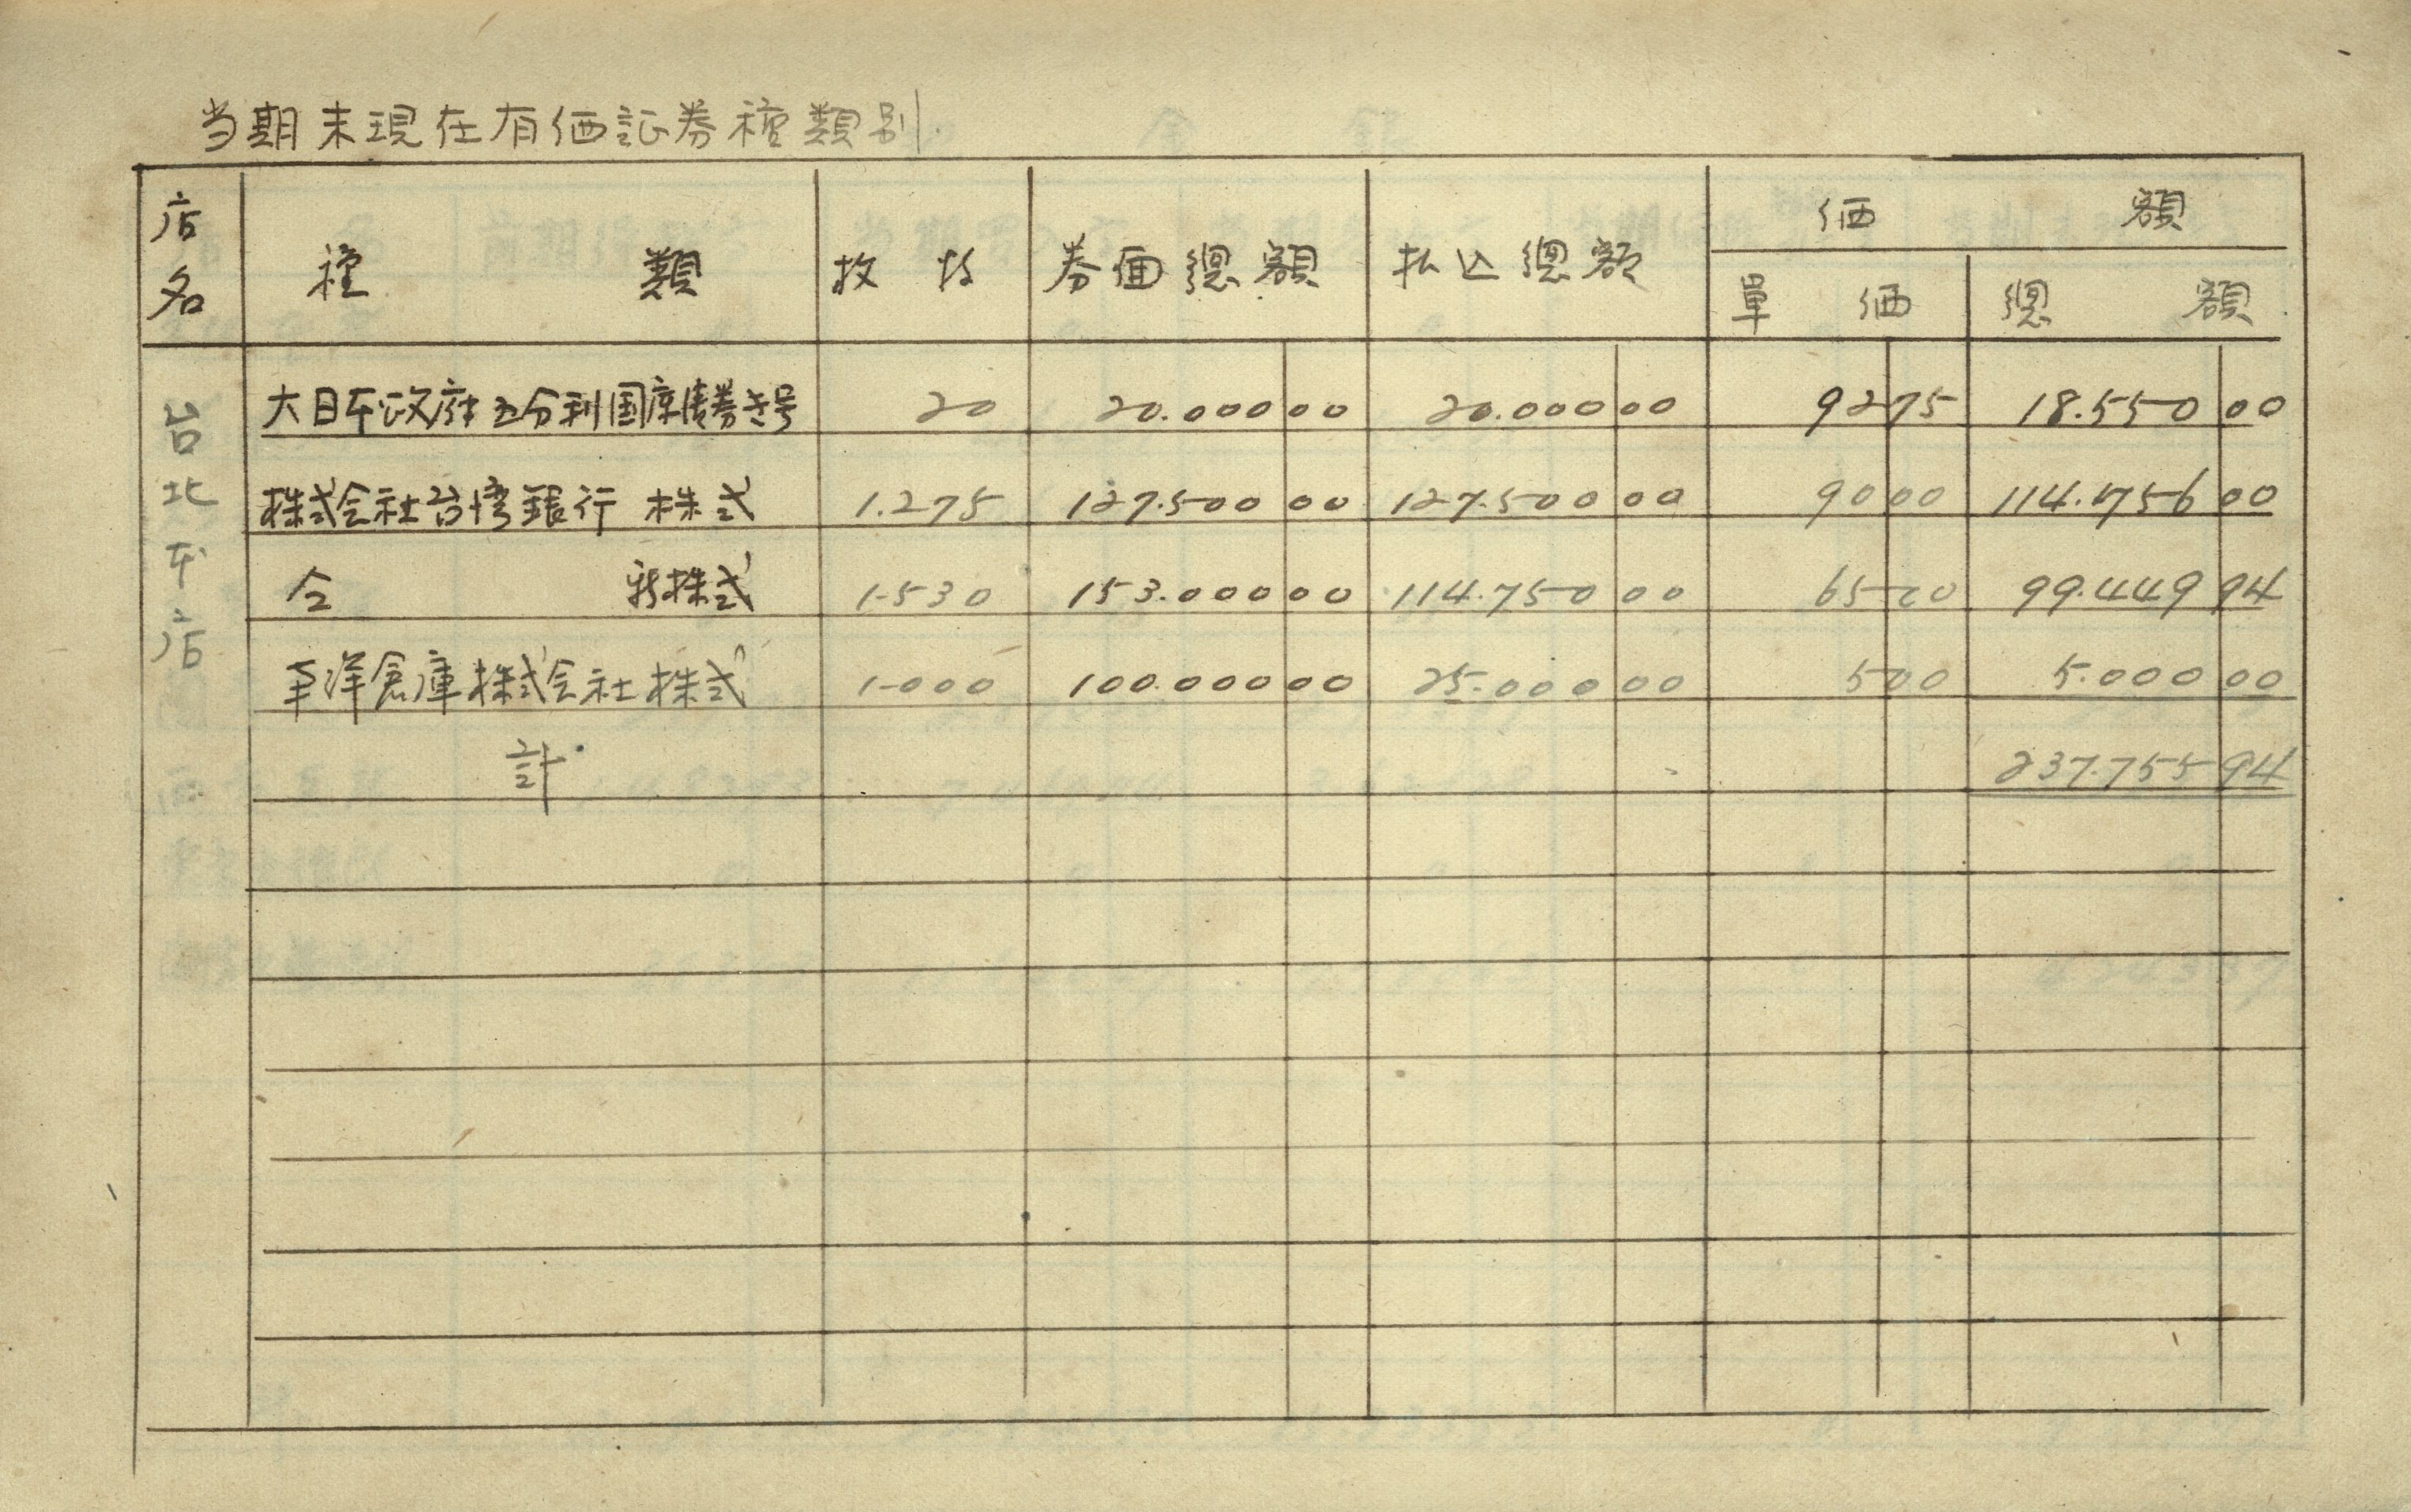 当期末現在有価証券種類別
店名 種類 枚数 券面總額 払込總額 価額
單価 總額
台北本店
大日本政府五分利国庫債券き号 20 20.000 00 20.000 00 92 75 18.550 00
株式会社台湾銀行 株式 1.275 127.500 00 127.500 00 90 00 114.756 00
仝 新株式 1-530 153.000 00 114.750 00 65 00 99.449 94
東洋倉庫株式会社株式 1-000 100.000 00 25.000 00 5 00 5.000 00
計 237.755 94